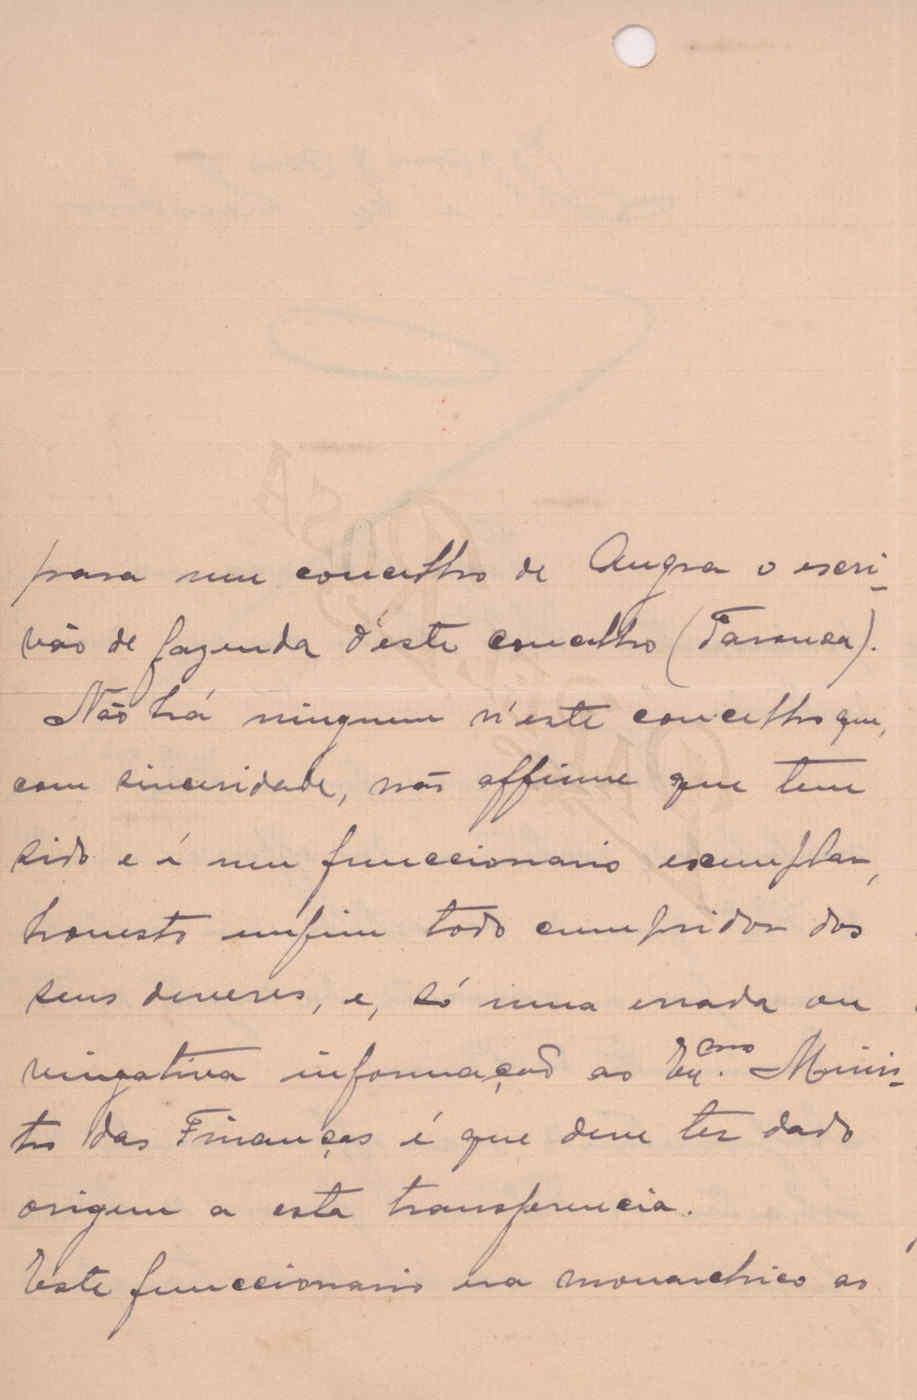 para um concelho de Angra o escri-
vão de fazenda d'este concelho (Tarouca).
Não há ninguem n'este concelho que,
com sinceridade, não affirme que tem
sido e é um funccionario exemplar,
honesto emfim todo cumpridor dos
seus deveres, e, só uma errada ou
vingativa informação ao Ex.mo Minis-
tro das Finanças é que deve ter dado
origem a esta transferencia.
Este funccionario era monarchico ao